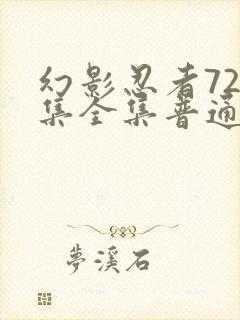 幻影忍者72
集全集普通
夢溪石